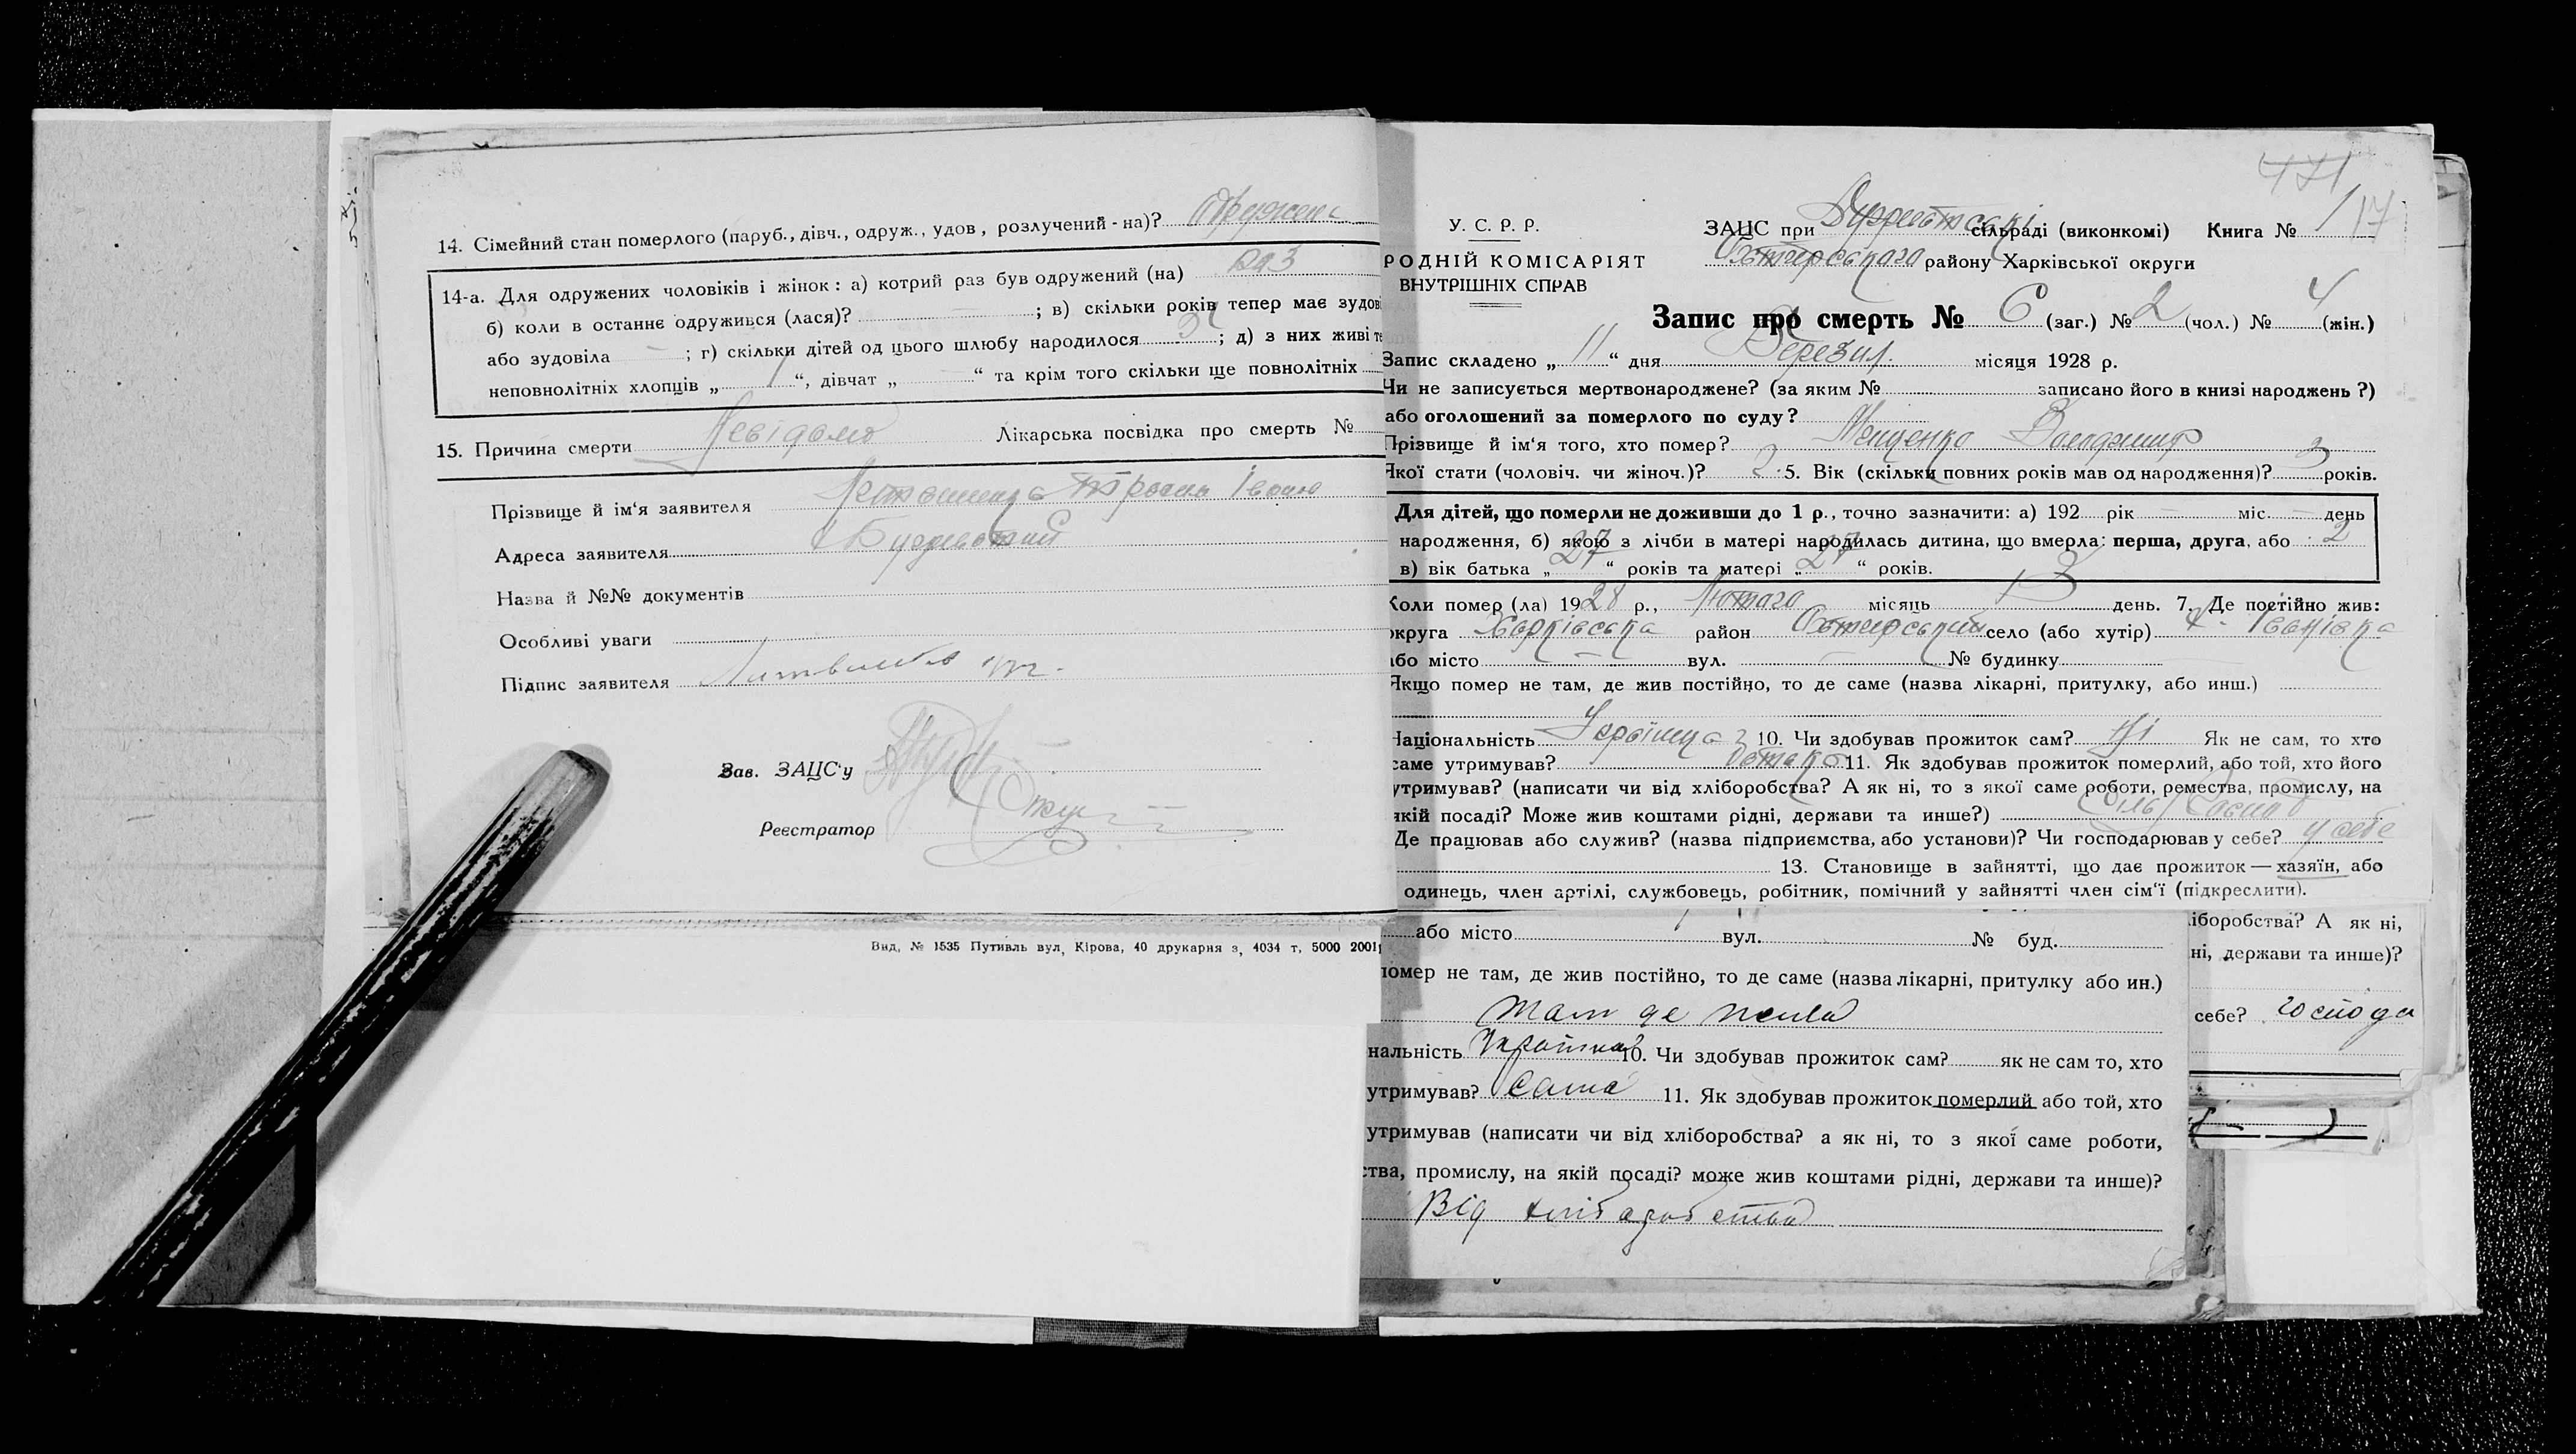 14. Сімейний стан померлого (паруб., дівч., одруж., удов, розлучений-на)?
14-а. Для одружених чоловіків і жінок: а) котрий раз був одружений (на) раз
б) коли в останнє одружився (лася)? ; в) скільки років тепер має зудові
або зудовіла ; г) скільки дітей од цього шлюбу народилося ; д) з них живі те
неповнолітніх хлопців „ 1 “, дівчат „ “ та крім того скільки ще повнолітніх
15. Причина смерти Невідомо Лікарська посвідка про смерть №
Прізвище й ім‘я заявителя
Адреса заявителя
Назва й №№ документів
Особливі уваги
Підпис заявителя
Зав. ЗАЦС‘у
Реєстратор
Вид, № 1535 Путивль вул, Кірова, 40 друкарня з, 4034 т, 5000 2001
471
У. С. Р. Р.
РОДНІЙ КОМІСАРІЯТ
ВНУТРІШНІХ СПРАВ
ЗАЦС при сільраді (виконкомі) Книга № 1 17
району Харківської округи
Запис про смерть № 6 (заг.) № 2 (чол.) № 4 (жін.)
Запис складено „ 11 “ дня Березил. місяця 1928 р.
Чи не записується мертвонароджене? (за яким № записано його в книзі народжень?)
або оголошений за померлого по суду?
Прізвище й ім‘я того, хто помер? Мащенко Володимир
Якої стати (чоловіч. чи жіноч.)? 2 5. Вік (скільки повних років мав од народження)? 3 років.
Для дітей, що померли не доживши до 1 р., точно зазначити: а) 192 рік — міс. — день
народження, б) якою з лічби в матері народилась дитина, що вмерла: перша, друга, або 2
в) вік батька „ 27 “ років та матері „ 27 “ років.
Коли помер (ла) 1928 р., Лютого місяць 13 день. 7. Де постійно жив:
округа Харківська район село (або хутір) х. Іванівка
або місто — вул. — № будинку
Якщо помер не там, де жив постійно, то де саме (назва лікарні, притулку, або инш.)
Національність 10. Чи здобував прожиток сам? Ні Як не сам, то хто
саме утримував? 11. Як здобував прожиток померлий, або той, хто його
утримував? (написати чи від хліборобства? А як ні, то з якої саме роботи, ремества, промислу, на
якій посаді? Може жив коштами рідні, держави та инше?) Сіль Господ
Де працював або служив? (назва підприємства, або установи)? Чи господарював у себе? у себе
13. Становище в зайнятті, що дає прожиток — хазяїн, або
одинець, член артілі, службовець, робітник, помічний у зайнятті член сім‘ї (підкреслити).
або місто вул. № буд.
помер не там, де жив постійно, то де саме (назва лікарні, притулку або ин.)
там де жила
нальність Українка 10. Чи здобував прожиток сам? як не сам то, хто
утримував? сама 11. Як здобував прожиток померлий або той, хто
утримував (написати чи від хліборобства? а як ні, то з якої саме роботи,
ства, промислу, на якій посаді? може жив коштами рідні, держави та инше)?
Від хліборобства
ліборобства? А як ні,
ні, держави та инше)?
себе? господа